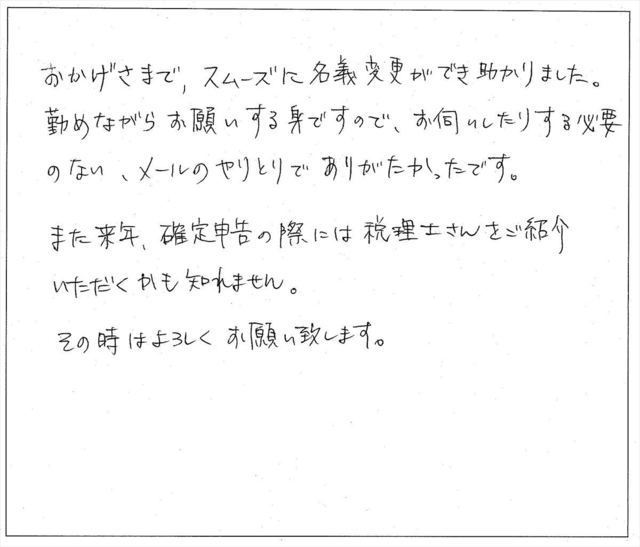 おかげさまで, スムーズに名義変更ができ助かりました。
勤めながらお願いする身ですので、お伺いしたりする必要
のない、メールのやりとりでありがたかったです。
また来年、確定申告の際には税理士さんをご紹介
いただくかも知れません。
その時はよろしくお願い致します。